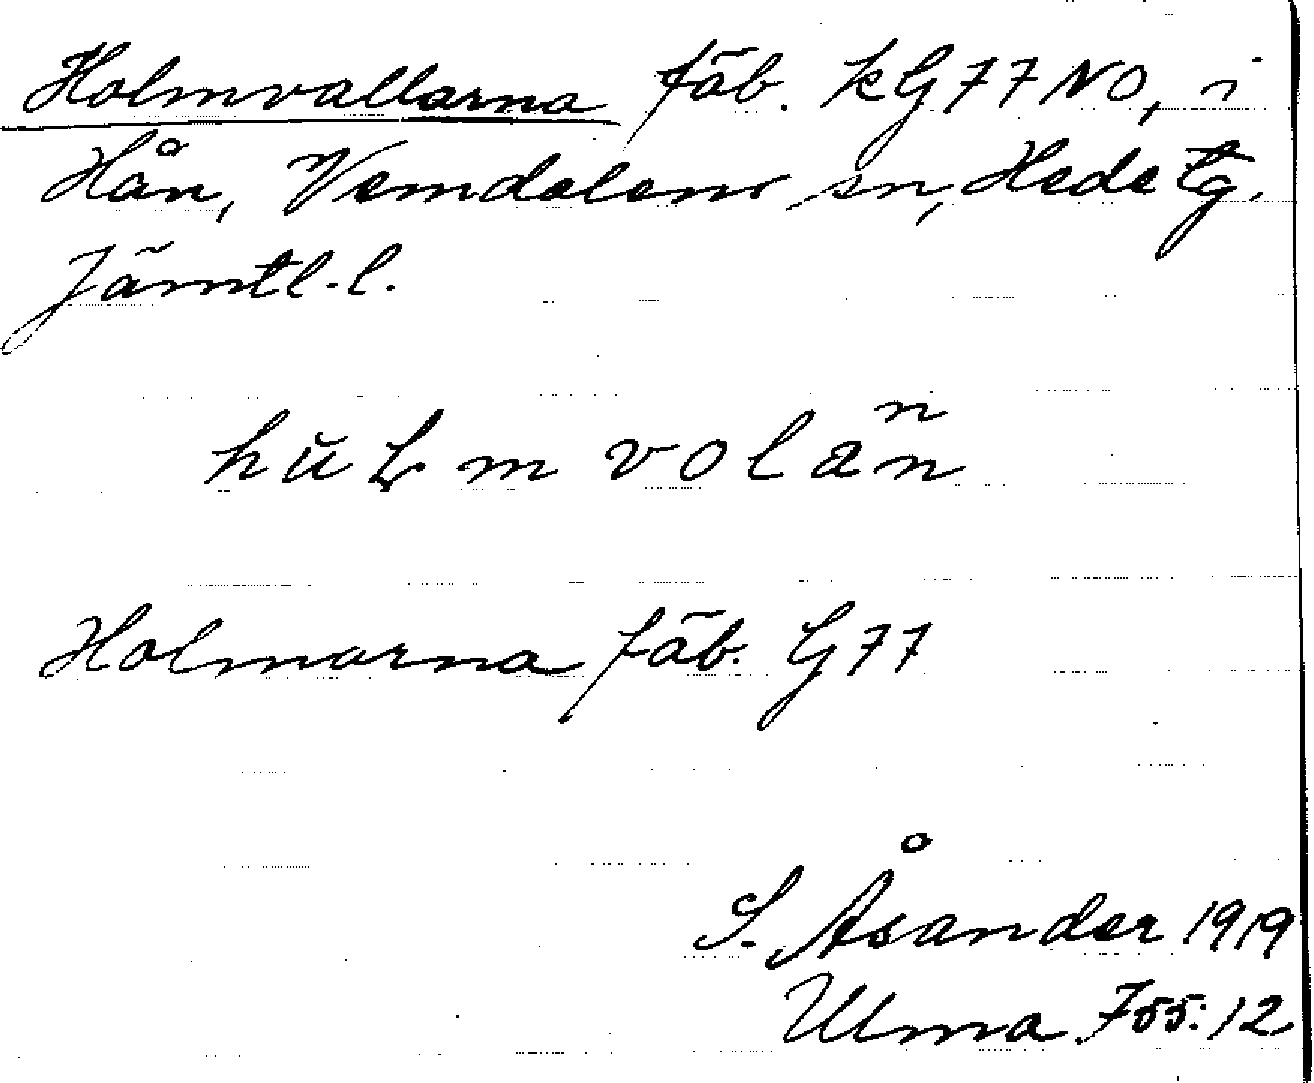 Holmvallarna fäb. kG77NO, i
Hån, Vemdalens sn, Hede tg.
Jämtl. l.
hŭꞭm volan̄n
Holmarna fäb. G77
S. Åsander 1919
Ulma 755:12